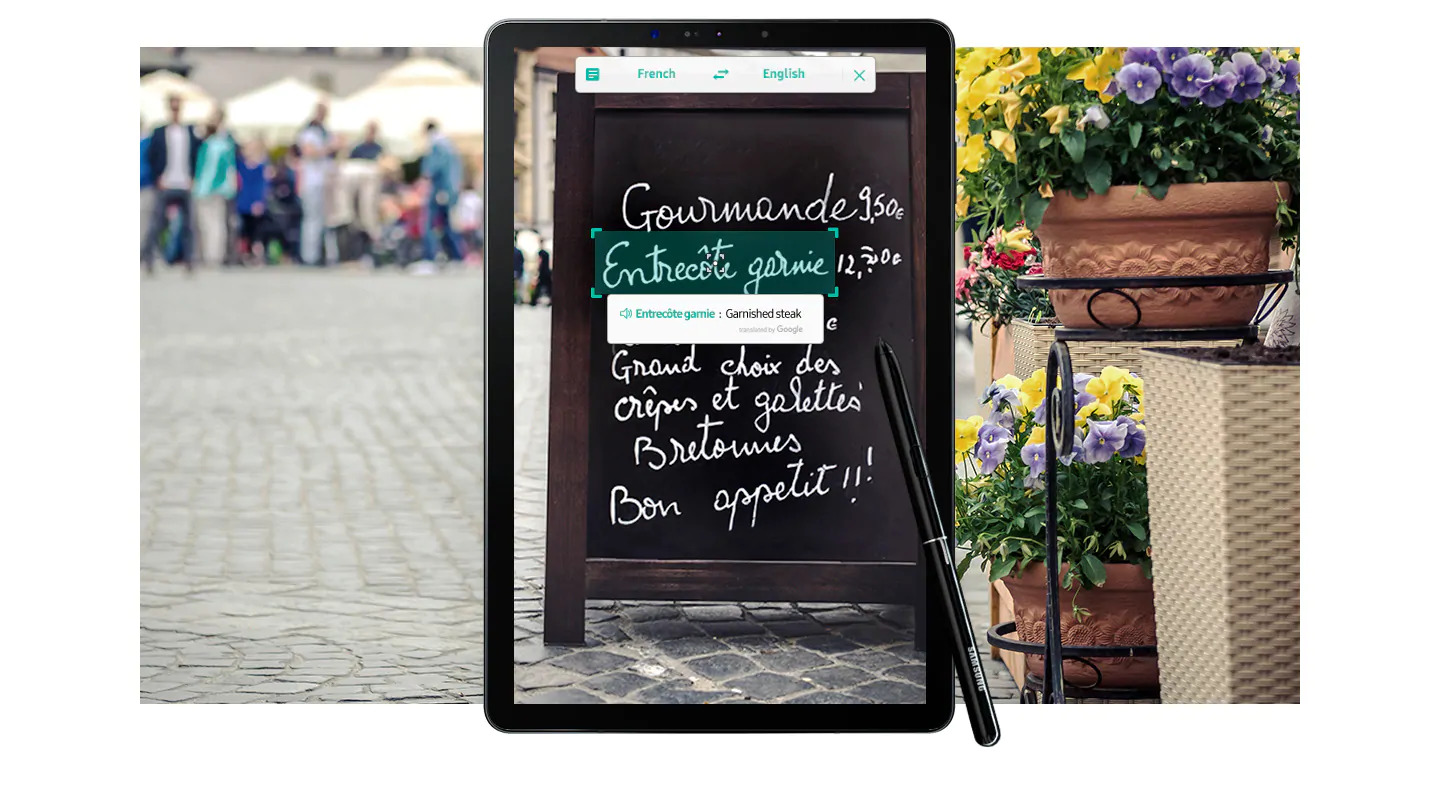 French English
Gourmande 9,50€
Entrecôte garnie 12,20€
Entrecôte garnie : Garnished steak
translated by Google
€
Grand choix des
crêpes et galettes
Bretonnes
Bon appetit !!!
SAMSUNG